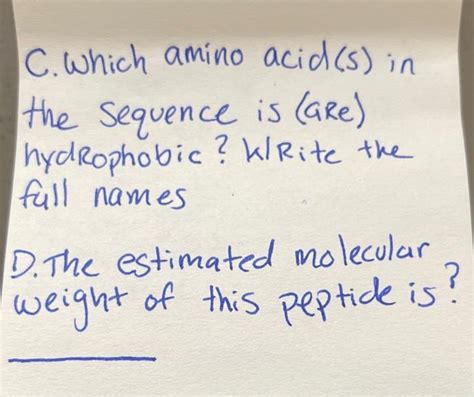 C. Which amino acid(s) in
the sequence is (are)
hydrophobic? Write the
full names
D. The estimated molecular
weight of this peptide is?